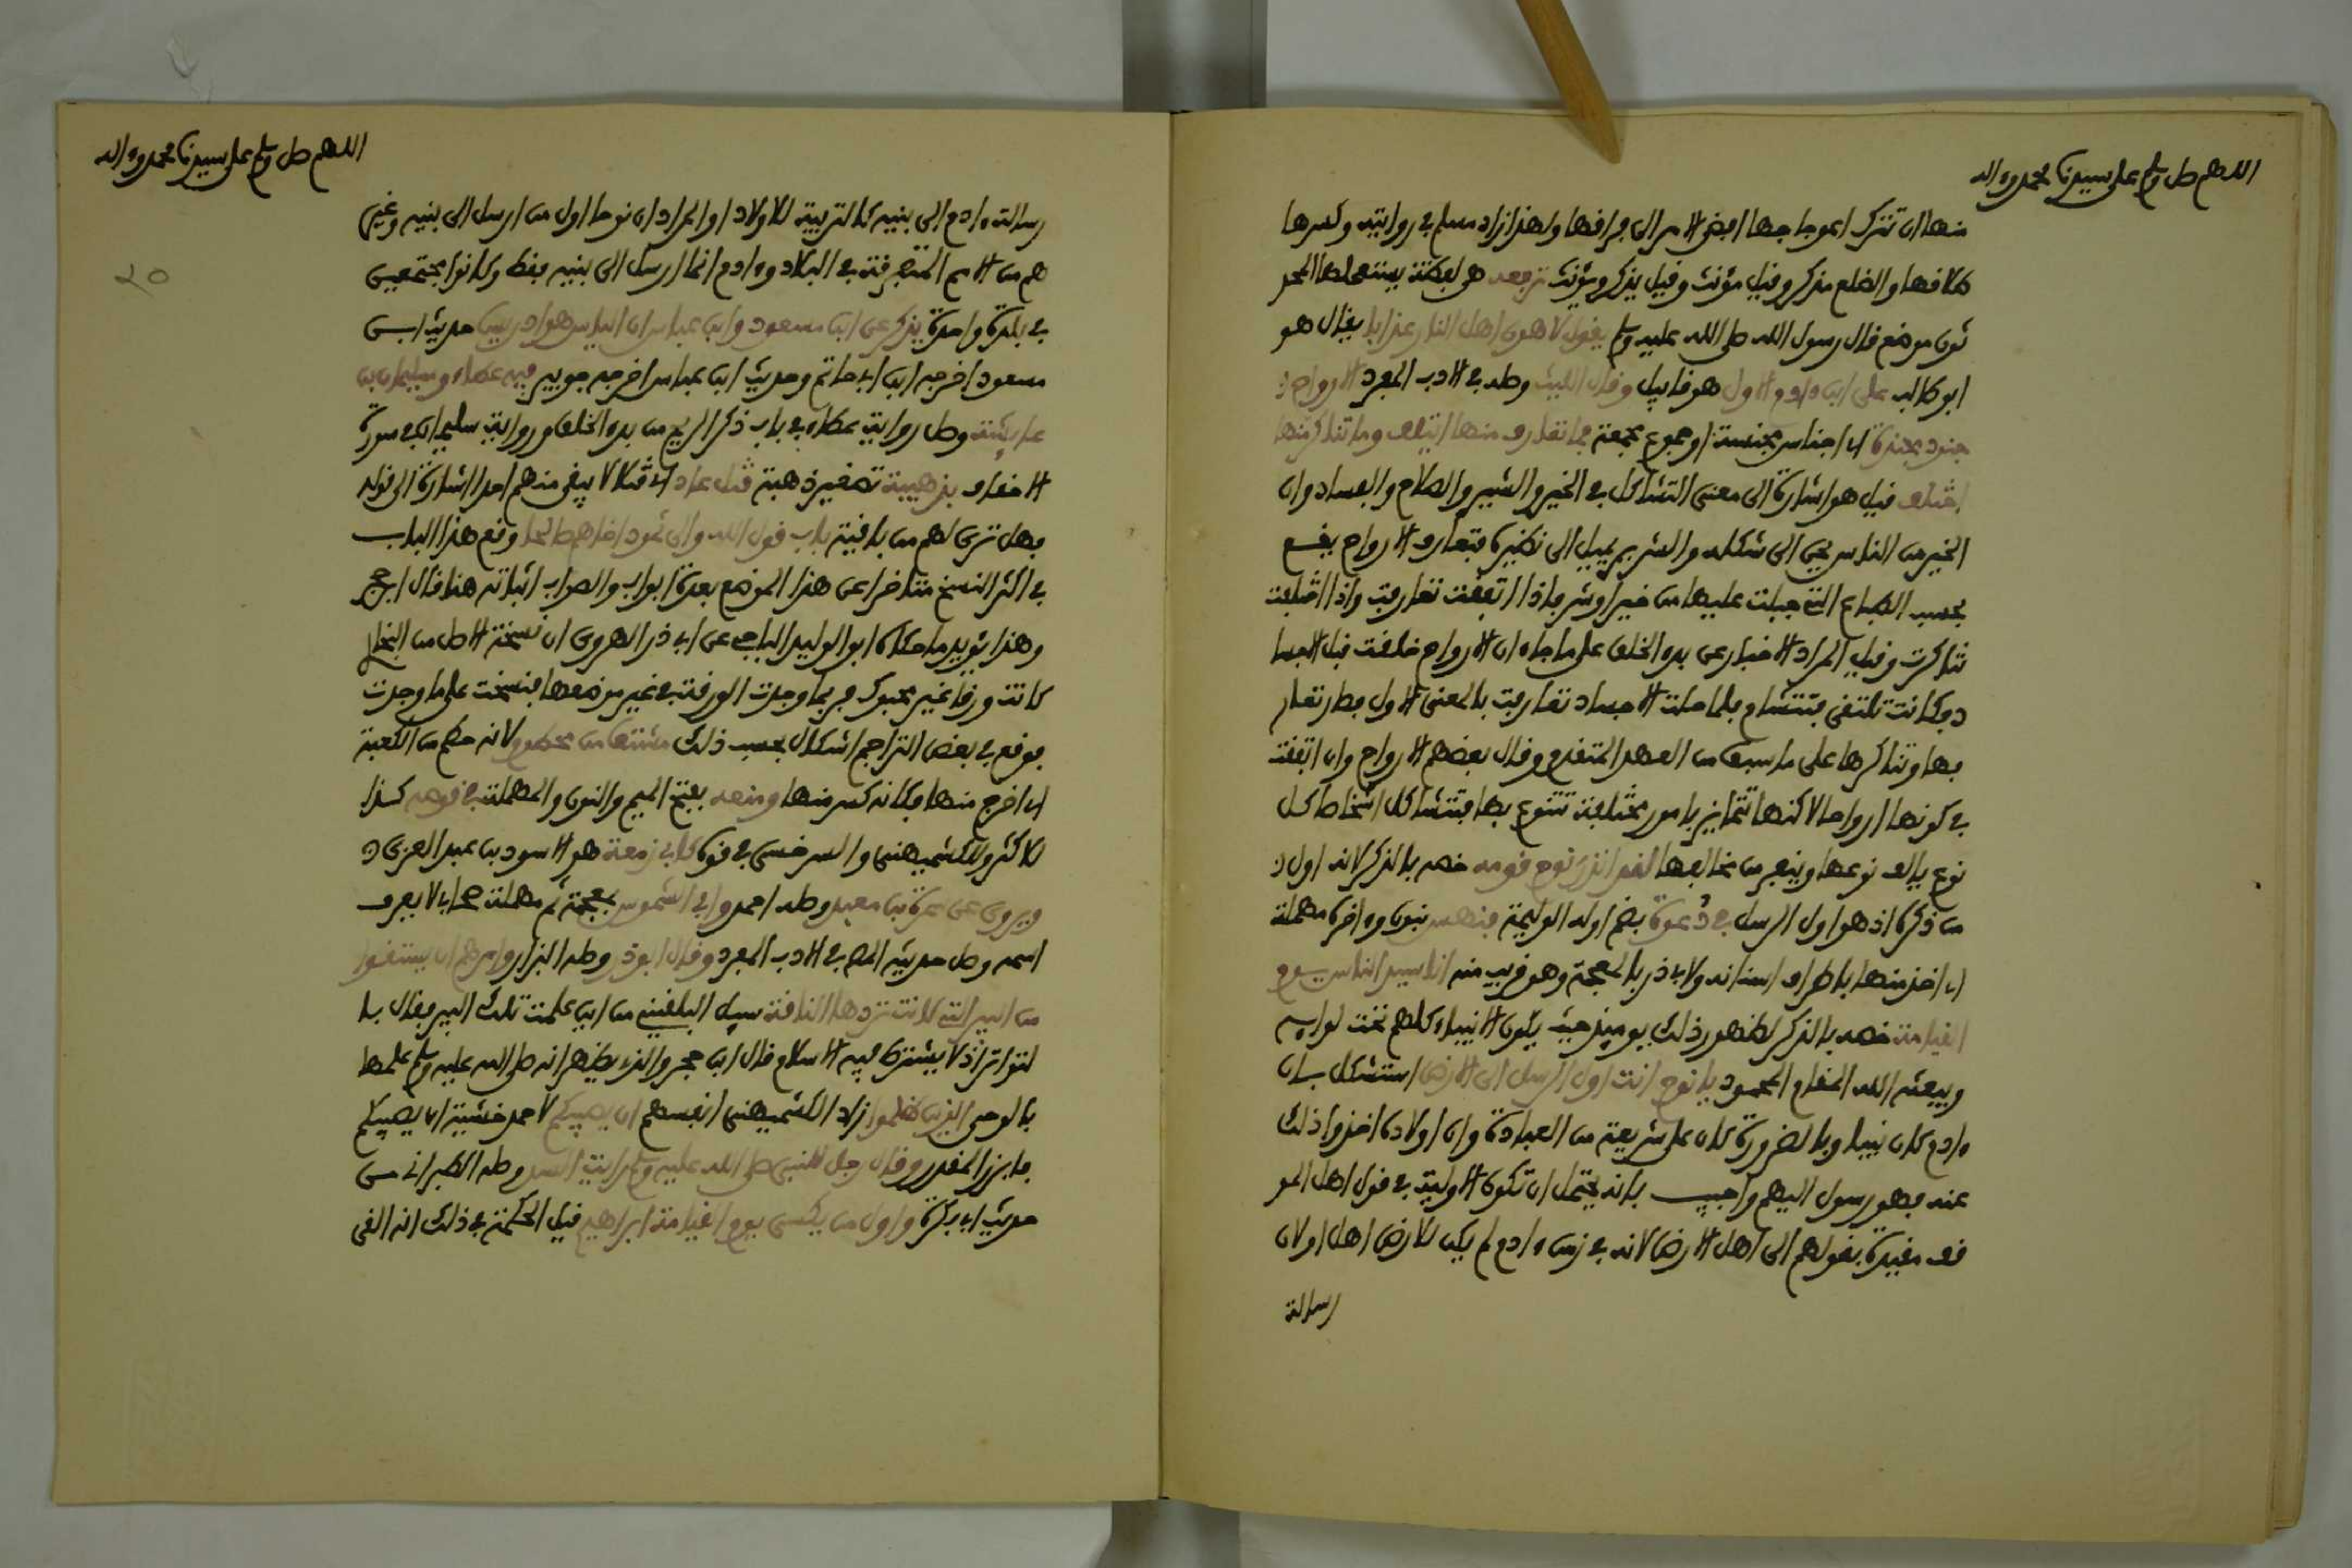 اللهم صل وسلم على سيدنا محمد وءاله
منها ان تترك اعوجاجها افضى الامر الى فراقها ولهذا زاد مسلم في روايته وكسرها
طلاقها والضلع مذكر وقيل مؤنث وقيل يذكر ويؤنث ترفعه هي لفظة يستعملها المحد
ثون موضع قال رسول الله صلى الله عليه وسلم يقول لاهون اهل النار عذابا يقال هو
ابو طالب على ابن ءادم الاول هو قابيل وقال الليث وصله في الادب المفرد الارواح
جنود مجندة اي اجناس مجنسة او جموع مجمعة فما تعارف منها ائتلف وما تناكر منها
اختلف قيل هو اشارة الى معنى التشاكل في الخير والشر والصلاح والفساد وان
الخير من الناس يحن الى شكله والشرير يميل الى نظيره فتعارف الارواح يقع
بحسب الطباع التي جبلت عليها من خير او شر فاذا اتفقت تعارفت واذا اختلفت
تناكرت وقيل المراد الاخبار عن بدء الخلق على ما جاء ان الارواح خلقت قبل الاجسا
د فكانت تلتقي فتتشام فلما حلت الاجساد تعارفت بالمعنى الاول فصار تعار
فها وتناكرها على ما سبق من العهد المتقدم وقال بعضهم الارواح وان اتفقت
في كونها ارواحا لاكنها تتمايز بامور مختلفة تتنوع بها فتتشاكل اشخاص كل
نوع يالف نوعها وينفر من مخالفها لقد انذر نوح قومه خصه بالذكر لانه اول
من ذكره اذ هو اول الرسل في دعوة بضم اوله الوليمة فنهس بنون وءاخره مهملة
اي اخذ منها باطراف اسنانه ولابي ذر بالمعجمة وهو قريب منه انا سيد الناس يوم
القيامة خصه بالذكر لظهور ذلك يومئذ حيث يكون الانبياء كلهم تحت لوائه
ويبعثه الله المقام المحمود يا نوح انت اول الرسل الى الارض استشكل بان
ءادم كان نبيا وبالضرورة كان على شريعة من العبادة وان اولاده اخذوا ذلك
عنه فهو رسول اليهم واجيب بانه يحتمل ان تكون الاولية في قول اهل المو
قف مقيدة بقولهم الى اهل الارض لانه في زمن ءادم لم يكن للارض اهل او لان
رسالة
اللهم صل وسلم على سيدنا محمد وءاله
٢٠
رسالة ءادم الى بنيه كالتربية للاولاد او المراد ان نوحا اول من ارسل الى بنيه وغير
هم من الامم المتفرقة في البلاد وءادم انما ارسل الى بنيه فقط وكانوا مجتمعين
في بلدة واحدة يذكر عن ابن مسعود وابن عباس ان الياس هو ادريس حديث ابن
مسعود اخرجه ابن ابي حاتم وحديث ابن عباس اخرجه جويبر فيه عطاء وسليمان بن
عايشة وصل رواية عطاء في باب ذكر الريح من بدء الخلق ورواية سليمان في سورة
الاحقاف بذهيبة تصغير ذهبة قتل عاد اي قتلا لا يبقي منهم احدا اشارة الى قوله
فهل ترى لهم من باقية باب قول الله والى ثمود اخاهم صالحا وقع هذا الباب
في اكثر النسخ متاخرا عن هذا الموضع بعدة ابواب والصواب اثباته هنا قال ابن حجر
وهذا يؤيد ما حكاه ابو الوليد الباجي عن ابي ذر الهروي ان نسخة الاصل من البخا
كانت ورقا غير محبوك فربما وجدت الورقة في غير موضعها فنسخت على ما وجدت
فوقع في بعض التراجم اشكال بحسب ذلك مشتق من محطوم لانه حطم من الكعبة
اي اخرج منها فكانه كسر منها ومنعة بفتح الميم والنون والمهملة في قومه كذا
للاكثر وللكشميهني والسرخسي في قوة كابي زمعة هو الاسود بن عبد العزى
ويروى عن سبرة بن معبد وصله احمد وابي الشموس بمعجمة ثم مهملة صحابي لا يعرف
اسمه وصل حديثه المص في الادب المفرد وقال ابو ذر وصله البزار وامرهم ان يستقوا
من البير التي كانت تردها الناقة سيل البلقيني من اين علمت تلك البير فقال با
لتواتر اذ لا يشترط فيه الاسلام قال ابن حجر والذي يظهر انه صلى الله عليه وسلم علمها
بالوحي الذين ظلموا زاد الكشميهني انفسهم ان يصيبكم لاحمد خشية ان يصيبكم
فابرز المقدر وقال رجل للنبي صلى الله عليه وسلم رايت السد وصله الطبراني من
حديث ابي بكرة واول من يكسى يوم القيامة ابراهيم قيل الحكمة في ذلك انه القي